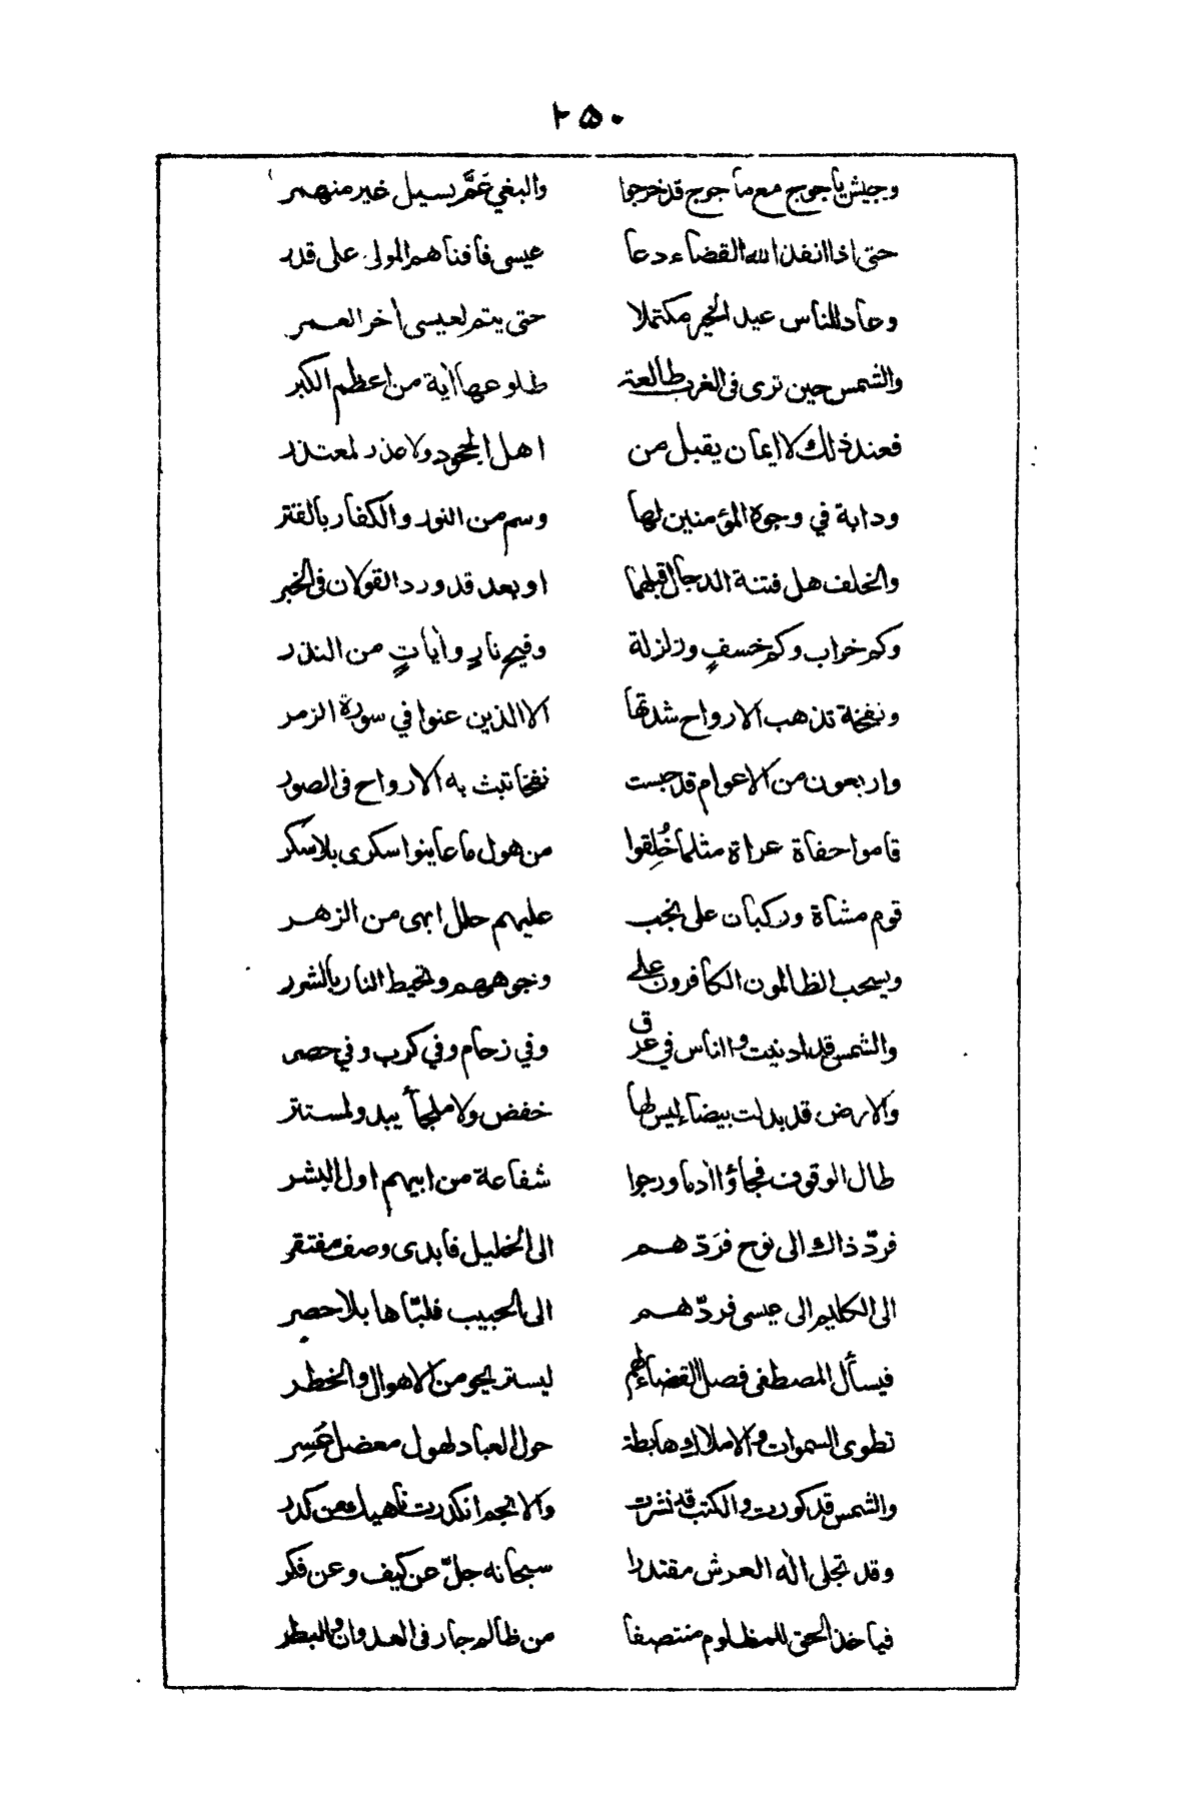 ٢٥٠
وجيش يأجوج مع مأجوج قد خرجوا والبغي عَمَّ بسيل غير منهمر
حتى اذا انفذ الله القضاء دعا عيسى فافناهم المولى على قدر
وعاد للناس عيد الخير مكتملا حتى يتم لعيسى أخر العمر
والشمس حين ترى فى الغرب طالعة طلوعها أية من اعظم الكبر
فعند ذلك لا ايمان يقبل من اهل الجحود ولا عذر لمعتذر
ودابة في وجوه المؤمنين لها وسم من النور والكفار بالقتر
والخلف هل فتنة الدجال قبلهما او بعد قد ورد القولان فى الخبر
وكم خراب وكم خسفٍ وزلزلة وفيح نارٍ وأياتٍ من النذر
ونفخة تذهب الارواح شدتها الا الذين عنوا في سورة الزمر
واربعون من الاعوام قد حبست نفخا تبث به الارواح فى الصور
قاموا حفاة عراة مثلما خُلِقوا من هول ما عاينوا سكرى بلا سكر
قوم مشاة وركبان على نجب عليهم حلل ابهى من الزهر
ويسحب الظالمون الكافرون على وجوههم وتحيط النار بالشرر
والشمس قد ادنيت والناس في عرق وفي زحام وفي كرب وفي حصر
والارض قد بدلت بيضاء ليس لها خفض ولا ملجأ يبدو لمستتر
طال الوقوف فجاؤا أدما ورجوا شفاعة من ابيهم اول البشر
فردّ ذاك الى نوح فرَدّهم الى الخليل فابدى وصف مفتقر
الى الكليم الى عيسى فردّهم الى الحبيب فلبّاها بلا حصر
فيسأل المصطفى فصل القضاء لهم ليستريحو من الاهوال والخطر
تطوى السموات والاملاك هابطة حول العباد لهول معضل عَسِر
والشمس قد كورت والكتب قد نشرت والانجم انكدرت ناهيك من كدر
وقد تجلى اله العرش مقتدرا سبحانه جلّ عن كيف وعن فكر
فيأخذ الحق للمظلوم منتصفا من ظالم جار فى العدوان والبطر